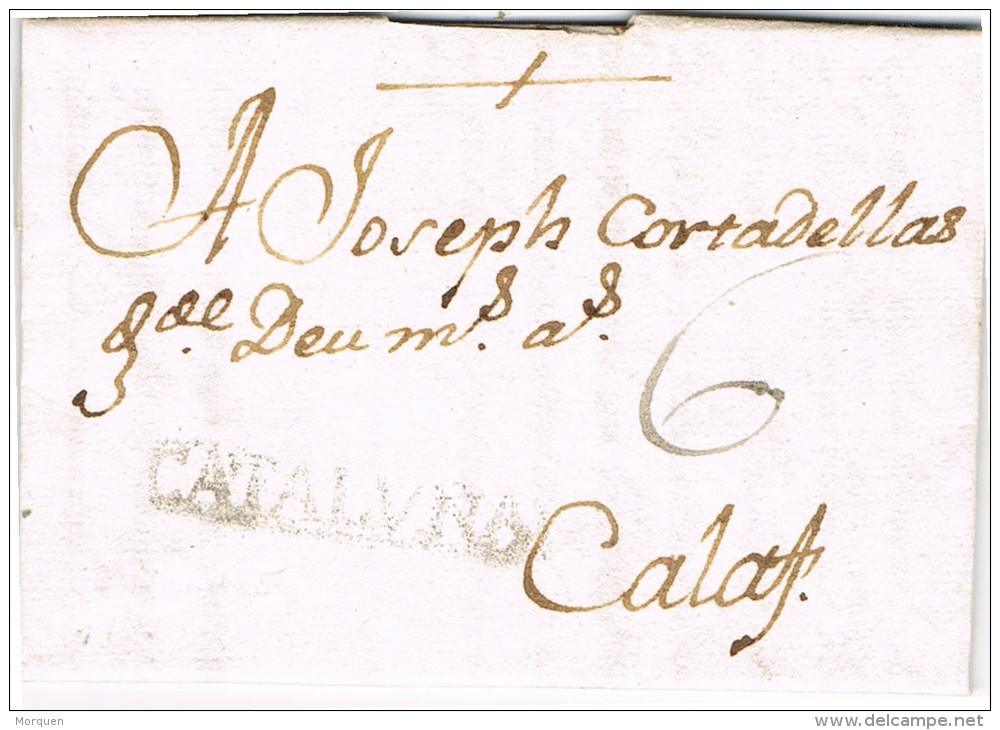 A Joseph Cortadellas
gde. Deu ms. as.
6
CATALUÑA
Calaf.
Morquen
delcampe.net